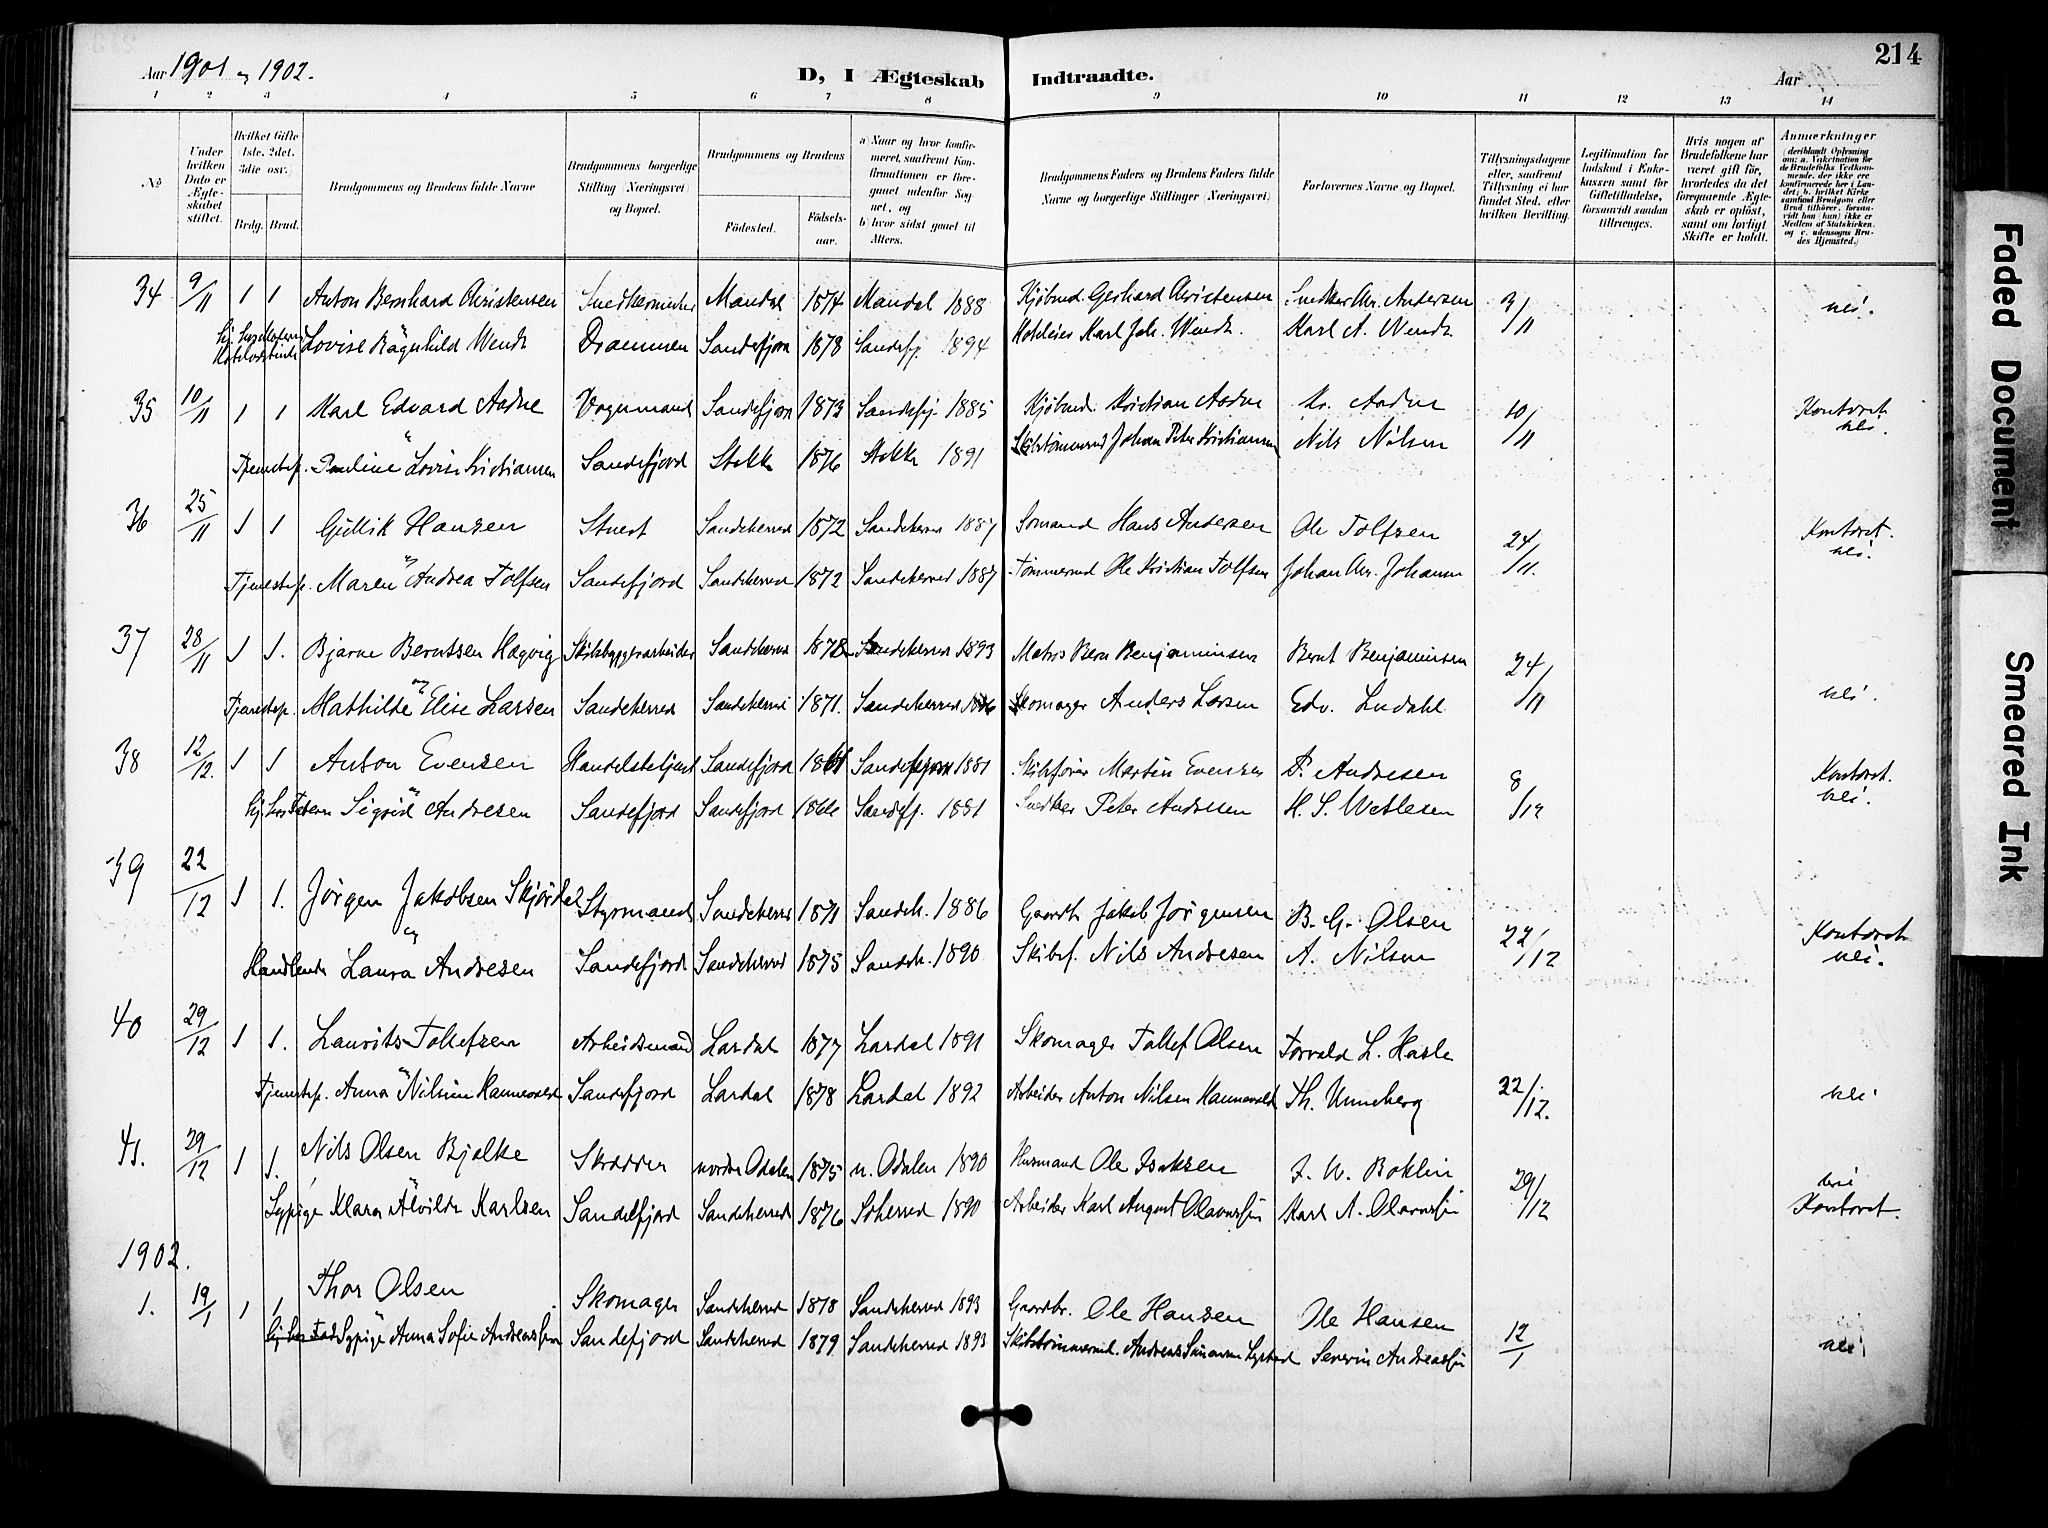 214
Aar 1901 og 1902.
D, I Ægteskab Indtraadte.
Aar
1 2 3 4 5 6 7 8 9 10 11 12 13 14
No
Under hvilken Dato er Ægteskabet stiftet.
Hvilket Gifte (1ste, 2det, 3die osv.)
Brdg. Brud.
Brudgommens og Brudens fulde Navne
Brudgommens borgerlige Stilling (Næringsvei) og Bopæl.
Brudgommens og Brudens
Fødested. Fødselsaar.
a) Naar og hvor konfirmeret, saafremt Konfirmationen er foregaaet udenfor Sognet, og
b) hvor sidst gaaet til Alters.
Brudgommens Faders og Brudens Faders fulde Navne og borgerlige Stillinger (Næringsvei)
Forlovernes Navne og Bopæl.
Tillysningsdagene eller, saafremt Tillysning ei har fundet Sted, efter hvilken Bevilling.
Legitimation for Indskud i Enkekassen samt for Giftetilladelse, forsaavidt saadan tiltrænges.
Hvis nogen af Brudefolkene har været gift før, hvorledes da det foregaaende Ægteskab er opløst, samt om lovligt Skifte er holdt.
Anmærkninger
(deriblandt Oplysning om: a. Vakcination for de Brudefolks Vedkommende, der ikke ere konfirmerede her i Landet; b. hvilket Kirkesamfund Brudgom eller Brud tilhører, forsaavidt han (hun) ikke er Medlem af Statskirken, og c. udensogns Brudes Hjemsted.)
34 9/11 1 1 Anton Bernhard Christensen Snedkermester Mandal 1874 Mandal 1888 Kjøbmd. Gerhard Christensen Snedker Chr. Andersen 3/11 nei.
Lovise Ragnhild Wendt Drammen Sandefjord 1878 Sandefj. 1894 Hoteleier Karl Joh. Wendt Karl A. Wendt
35 10/11 1 1 Karl Edvard Aadne Vognmand Sandefjord 1873 Sandefj. 1885 Kjøbmd. Kristian Aadne Kr. Aadne 10/11 Kontoret nei.
Tjenestep. Pauline Lovise Kristiansen Sandefjord Stokke 1876 Stokke 1891 Skibstømmermd Johan Peter Kristiansen Nils Nilsen
36 25/11 1 1 Gullik Hansen Stuert Sandeherred 1872 Sandeherred 1887 Sømand Hans Andersen Ole Tolfsen 24/11 Kontoret. nei.
Tjenestep. Maren Andrea Tolfsen Sandefjord Sandeherred 1872 Sandeherred 1887 Tømmermd Ole Kristian Tolfsen Johan Chr. Johansen
37 28/11 1 1. Bjarne Berntsen Hægvig Skibsbyggerarbeider Sandeherred 1878 Sandeherred 1893 Matros Bern Benjaminsen Bernt Benjaminsen 24/11 nei.
Tjenestep. Mathilde Elise Larsen Sandeherred Sandeherred 1871. Sandeherred 1886 Skomager Anders Larsen Edv. Lindahl
38 12/12. 1 1 Anton Evensen Handelsbetjent Sandefjord Sandefjord 1881 Skibsfører Martin Evensen P. Andresen 8/12 Kontoret. nei.
hj. hos Faderen Sigrid Andresen Sandefjord Sandefjord 1866 Sandefj. 1881 Snedker Peter Andresen H. S. Wetlesen
39 22/12 1 1. Jørgen Jakobsen Skjørdal Styrmand Sandeherred 1871 Sandeh. 1886 Gaardbr. Jakob Jørgensen B. G. Olsen 22/12 Kontoret nei.
Handlende Laura Andresen Sandefjord Sandeherred 1875 Sandeh. 1890 Skibsf. Nils Andresen A. Nilsen
40 29/12 1 1. Laurits Tollefsen Arbeidsmand Lardal 1877 Lardal 1891 Skomager Tollef Olsen Torvald L. Hasle 22/12. nei
Tjenestep. Anna Nilsine Hannevold Sandefjord Lardal 1878 Lardal 1892 Arbeider Anton Nilsen Hannevold Th. Unneberg
41. 29/12 1 1. Nils Olsen Bjelke Skrædder nordre Odalen 1875 n. Odalen 1890 Husmand Ole Isaksen J. W. Boklin 29/12 nei Kontoret.
Sypige Klara Alvilde Karlsen Sandefjord Sandeherred 1876 Soherred 1890 Arbeider Karl August Olavessøn Karl A. Olavessøn
1902.
1. 19/1 1 1 Thor Olsen Skomager Sandeherred 1878 Sandeherred 1893 Gaardbr. Ole Hansen Ole Hansen 12/1 nei
Sypige Anna Sofie Andreassen Sandefjord Sandeherred 1879 Sandeherred 1893 Skibstømmermd. Andreas Severin Andreassen
Faded Document
Smeared Ink